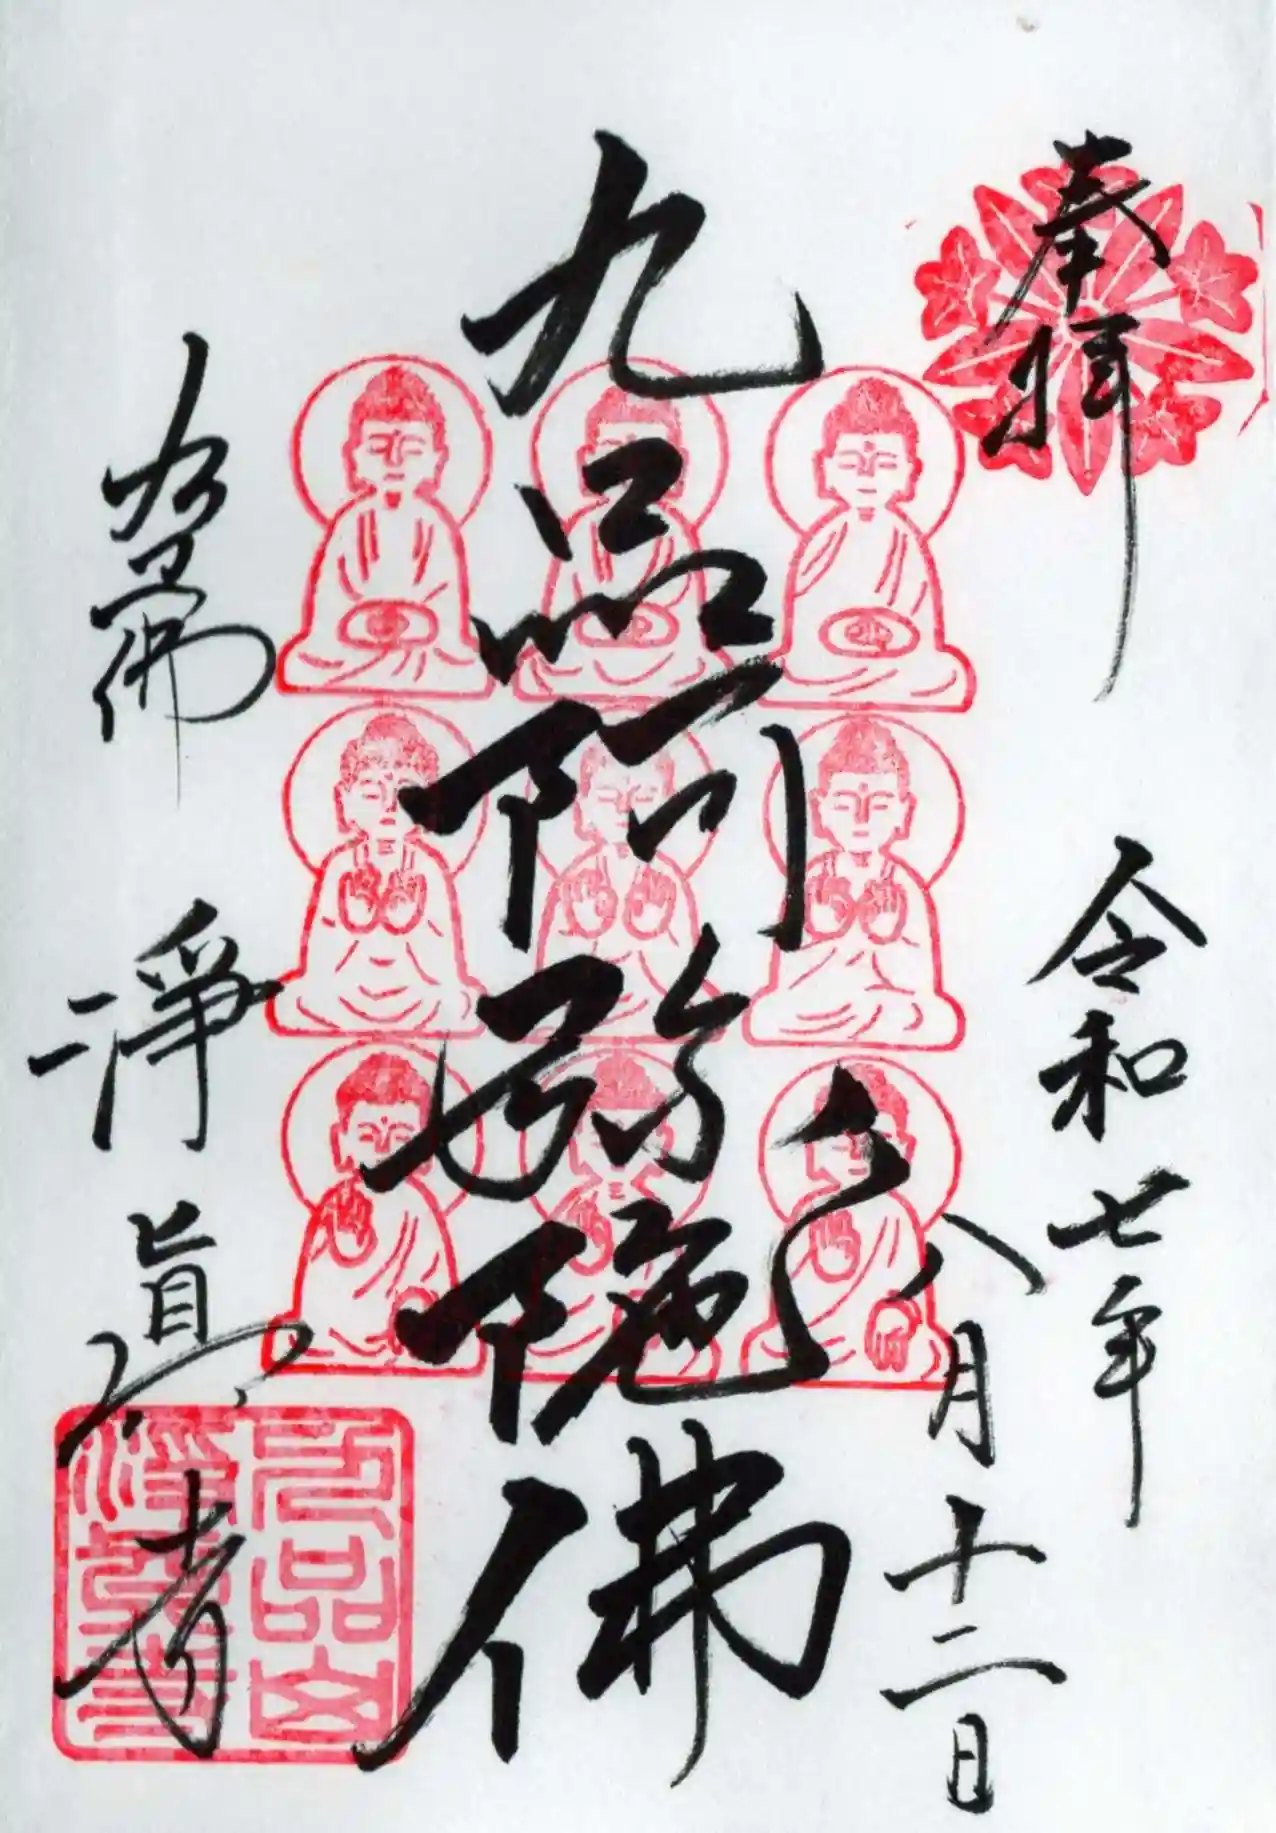 奉拝
令和七年
八月十二日
九品阿弥陁佛
九品佛
淨眞寺
九品山
淨眞寺